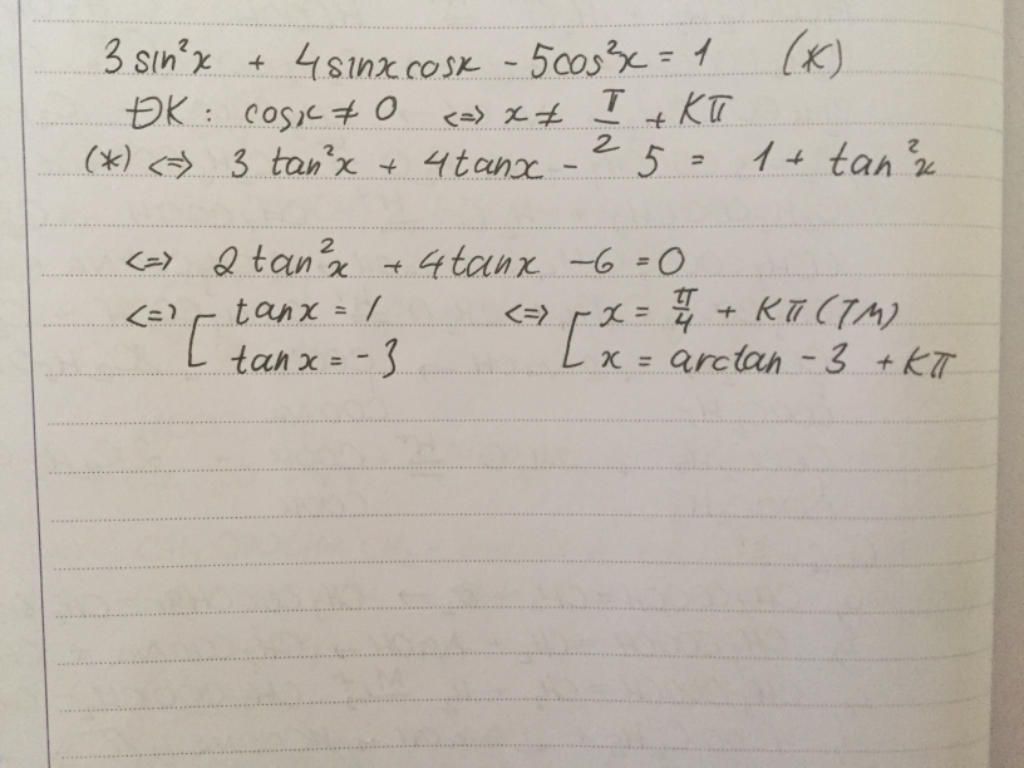 3 sin²x + 4sinxcosx - 5cos²x = 1 (*)
ĐK: cosx ≠ 0 <=> x ≠ π/2 + Kπ
(*) <=> 3 tan²x + 4tanx - 5 = 1 + tan²x
<=> 2tan²x + 4tanx - 6 = 0
<=> [ tanx = 1 <=> [ x = π/4 + Kπ (TM)
tanx = -3 x = arctan -3 + Kπ